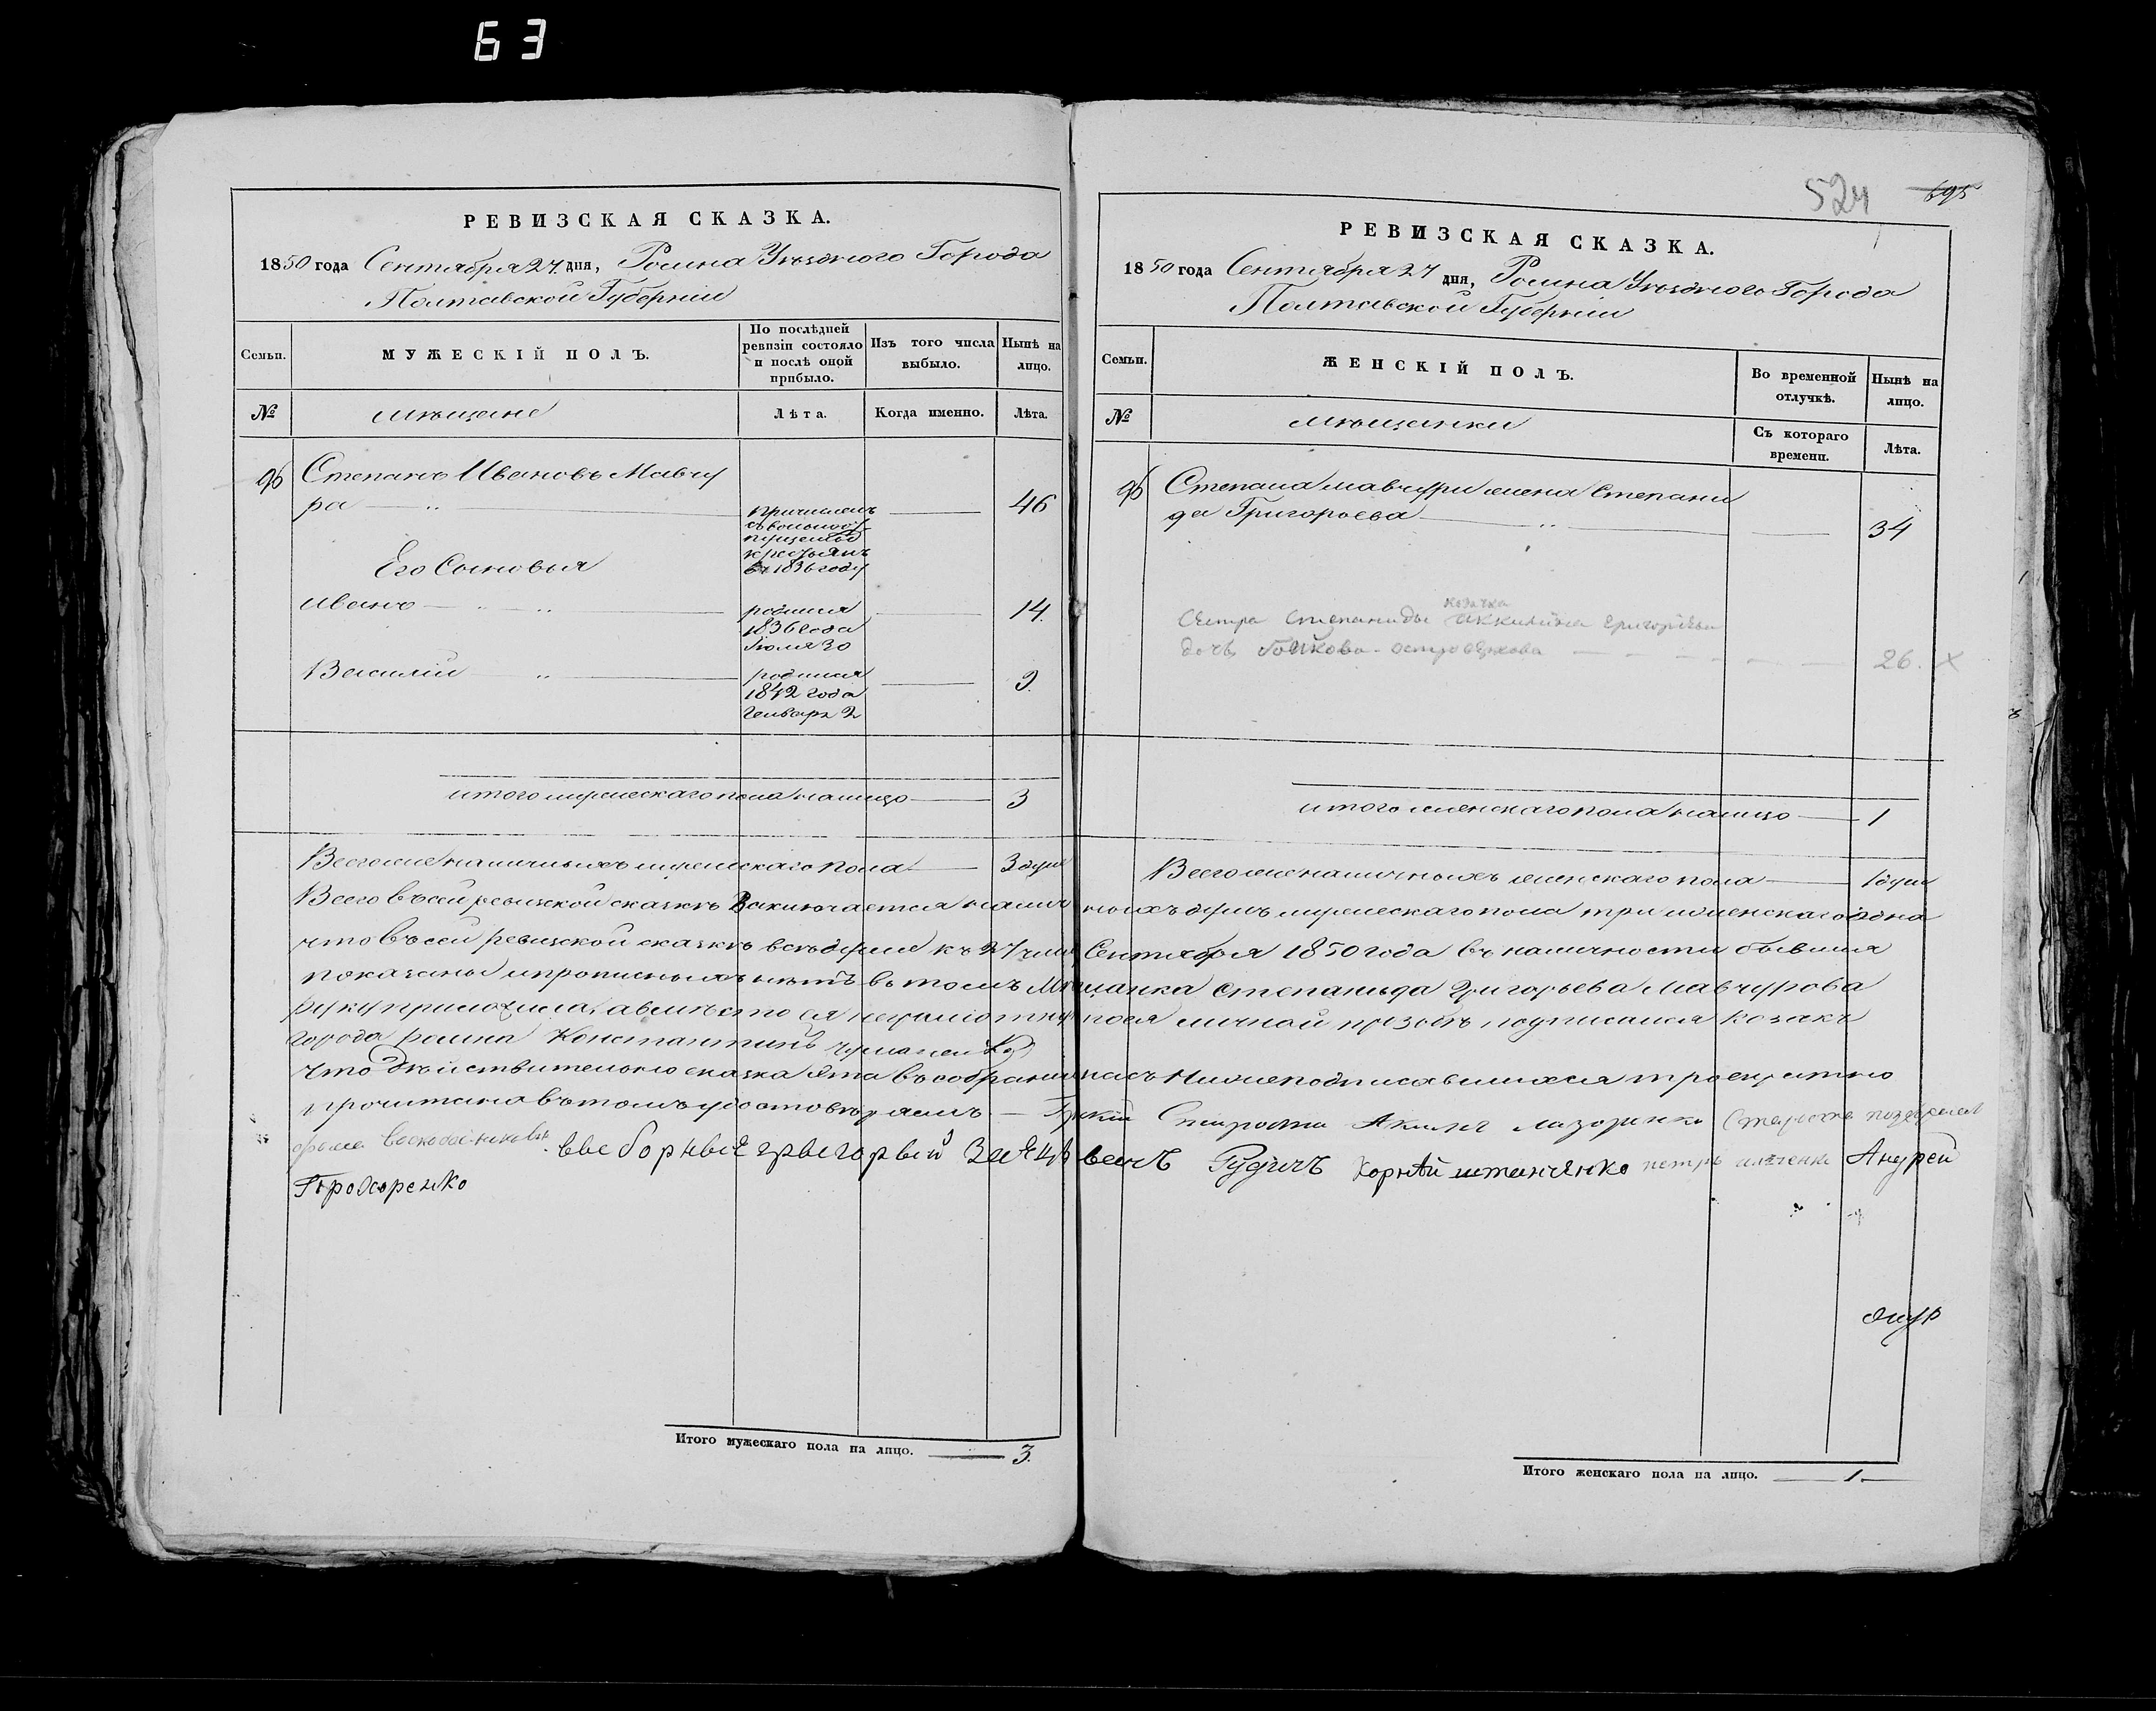 63
РЕВИЗСКАЯ СКАЗКА.
1850 года Сентября 27 дня, Ромна Уѣзднаго Города
Полтавской Губерніи
Семьи.
МУЖЕСКІЙ ПОЛЪ.
По послѣдней ревизіи состояло и послѣ оной прибыло.
Изъ того числа выбыло.
Нынѣ на лицо.
№
мѣщане
Лѣта.
Когда именно.
Лѣта.
Степанъ Ивановъ Мавчу
ра
46
причисленъ
крестьянъ
въ 1836 году
Его Сыновья
Иванъ
14.
родился
1836 года
Іюля 30
Василій
9.
родился
1842 года
Генваря 2
итого мужескаго пола налицо 3
Всего же наличныхъ мужескаго пола 3 души
Итого мужескаго пола на лицо. 3.
524
695
РЕВИЗСКАЯ СКАЗКА.
1850 года Сентября 27 дня, Ромна Уѣзднаго Города
Полтавской Губерніи
Семьи.
ЖЕНСКІЙ ПОЛЪ.
Во временной отлучкѣ.
Нынѣ на лицо.
№
мѣщанки
Съ котораго времени.
Лѣта.
Степана Мавчуры жена Степани
да Григорьева
34
Сестра Степаниды Григорьева
дочь
26. X
итого женскаго пола налицо 1
Всего же наличныхъ женскаго пола 1 душа
Всего въ сей ревизской сказкѣ заключается наличныхъ душъ мужескаго пола три и женскаго одна
что въ сей ревизской сказкѣ всѣ души къ 27 числу Сентября 1850 года въ наличности бывшия
показаны и прописныхъ нѣтъ въ томъ Мѣщанка Степанида Григорьева Мавчурова
руку приложила, а вмѣсто ея неграмотной по ея личной прозбѣ подписался козакъ
города ромна Константинъ
Что дѣйствительно сказка эта въ собраніи насъ нижеподписавшихся троекратно
прочитана въ томъ удостовѣряемъ Староста
выборные Григорій Корнѣй Андрей
Прохоренко
Итого женскаго пола на лицо. 1.